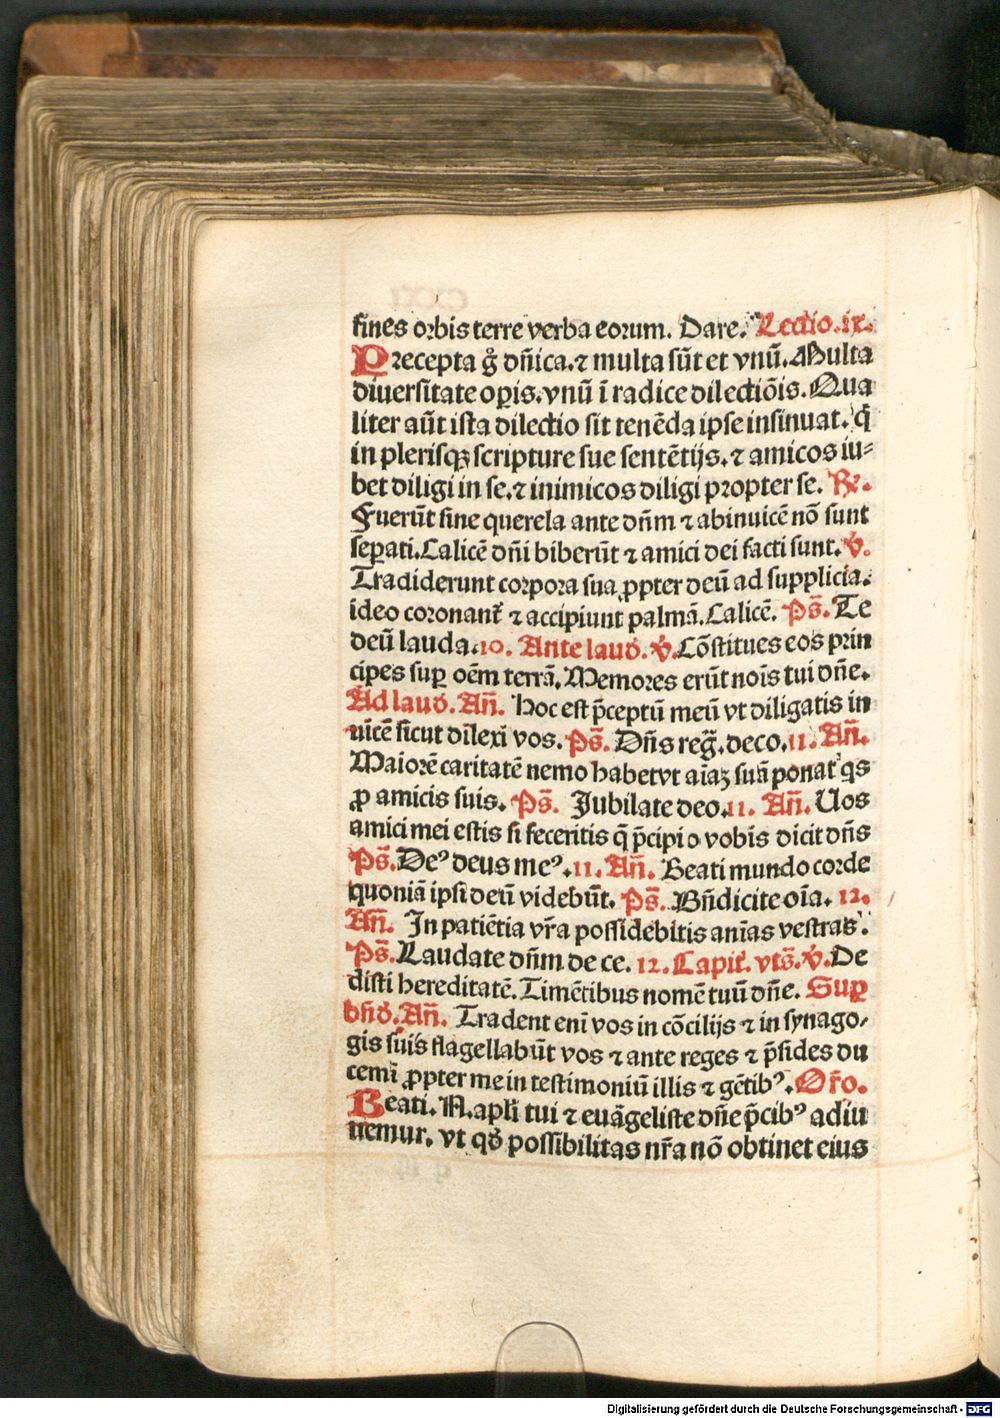 fines orbis terre verba eorum. Dare. Lectio .ix.
Precepta g̊ dñica. ⁊ multa sūt et vnū. Multa
diuersitate oꝑis. vnū ī radice dilectiōis. Qua
liter aūt ista dilectio sit tenēda ipse insinuat. q̇
in plerisqꝫ scripture sue sentētijs. ⁊ amicos iu⸗
bet diligi in se. ⁊ inimicos diligi propter se. ℟.
Fuerūt sine querela ante dñm ⁊ abinuicē nō sunt
seꝑati. Calicē dñi biberūt ⁊ amici dei facti sunt. ℣.
Tradiderunt corpora sua ꝓpter deū ad supplicia.
ideo coronant᷑ ⁊ accipiunt palmā. Calicē. Ps̄. Te
deū lauda. 10. Ante laud. ℣. Cōstitues eos prin
cipes suꝑ oēm terrā. Memores erūt nois̄ tui dñe.
Ad laud. Añ. Hoc est p̄ceptū meū vt diligatis in
uicē sicut dilexi vos. Ps̄. Dñs reg̃. deco. 11. Añ.
Maiorē caritatē nemo habet vt aīaꝫ suā ponat qs
ꝓ amicis suis. Ps̄. Jubilate deo. 11. Añ. Uos
amici mei estis si feceritis q̄ p̄cipio vobis dicit dñs
Ps̄. Deꝰ deus meꝰ. 11. Añ. Beati mundo corde
quoniā ipsi deū videbūt. Ps̄. Bñdicite oīa. 12.
Añ. In patiētia vr̄a possidebitis anīas vestras.
Ps̄. Laudate dñm de ce. 12. Capit̉. vts̄. ℣. De
disti hereditatē. Timētibus nomē tuū dñe. Suꝑ
bñd. Añ. Tradent enī vos in cōcilijs ⁊ in synago⸗
gis suis flagellabūt vos ⁊ ante reges ⁊ p̄sides du
cemī ꝓpter me in testimoniū illis ⁊ gētibꝰ. Or̄o.
Beati. N. apl̄i tui ⁊ euāgeliste dñe p̄cibꝰ adiu
uemur. vt qd̓ possibilitas nr̄a nō obtinet eius
Digitalisierung gefördert durch die Deutsche Forschungsgemeinschaft - DFG